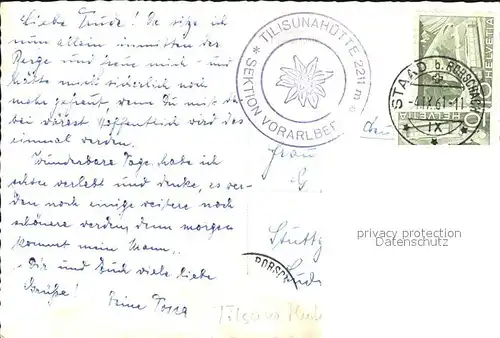 Liebe Trude! Da sitze ich
nun allein inmitten der
Berge und freue mich - und
hätte mich sicherlich noch
mehr gefreut, wenn Du mit da-
bei wärest. Hoffentlich wird das
einmal werden.
Wunderbare Tage habe ich
schon verlebt und denke, es wer-
den noch einige weitere noch
schönere werden, denn morgen
kommt mein Mann.
Dir und Euch viele liebe
Grüße! Deine
TILISUNAHÜTTE 2211 m
SEKTION VORARLBER
HELVETIA
HELVETIA
STAAD b. RORSCHACH
-4.IX.61.-11
IX
Frau
Stuttg
RORSCH
privacy protection
Datenschutz